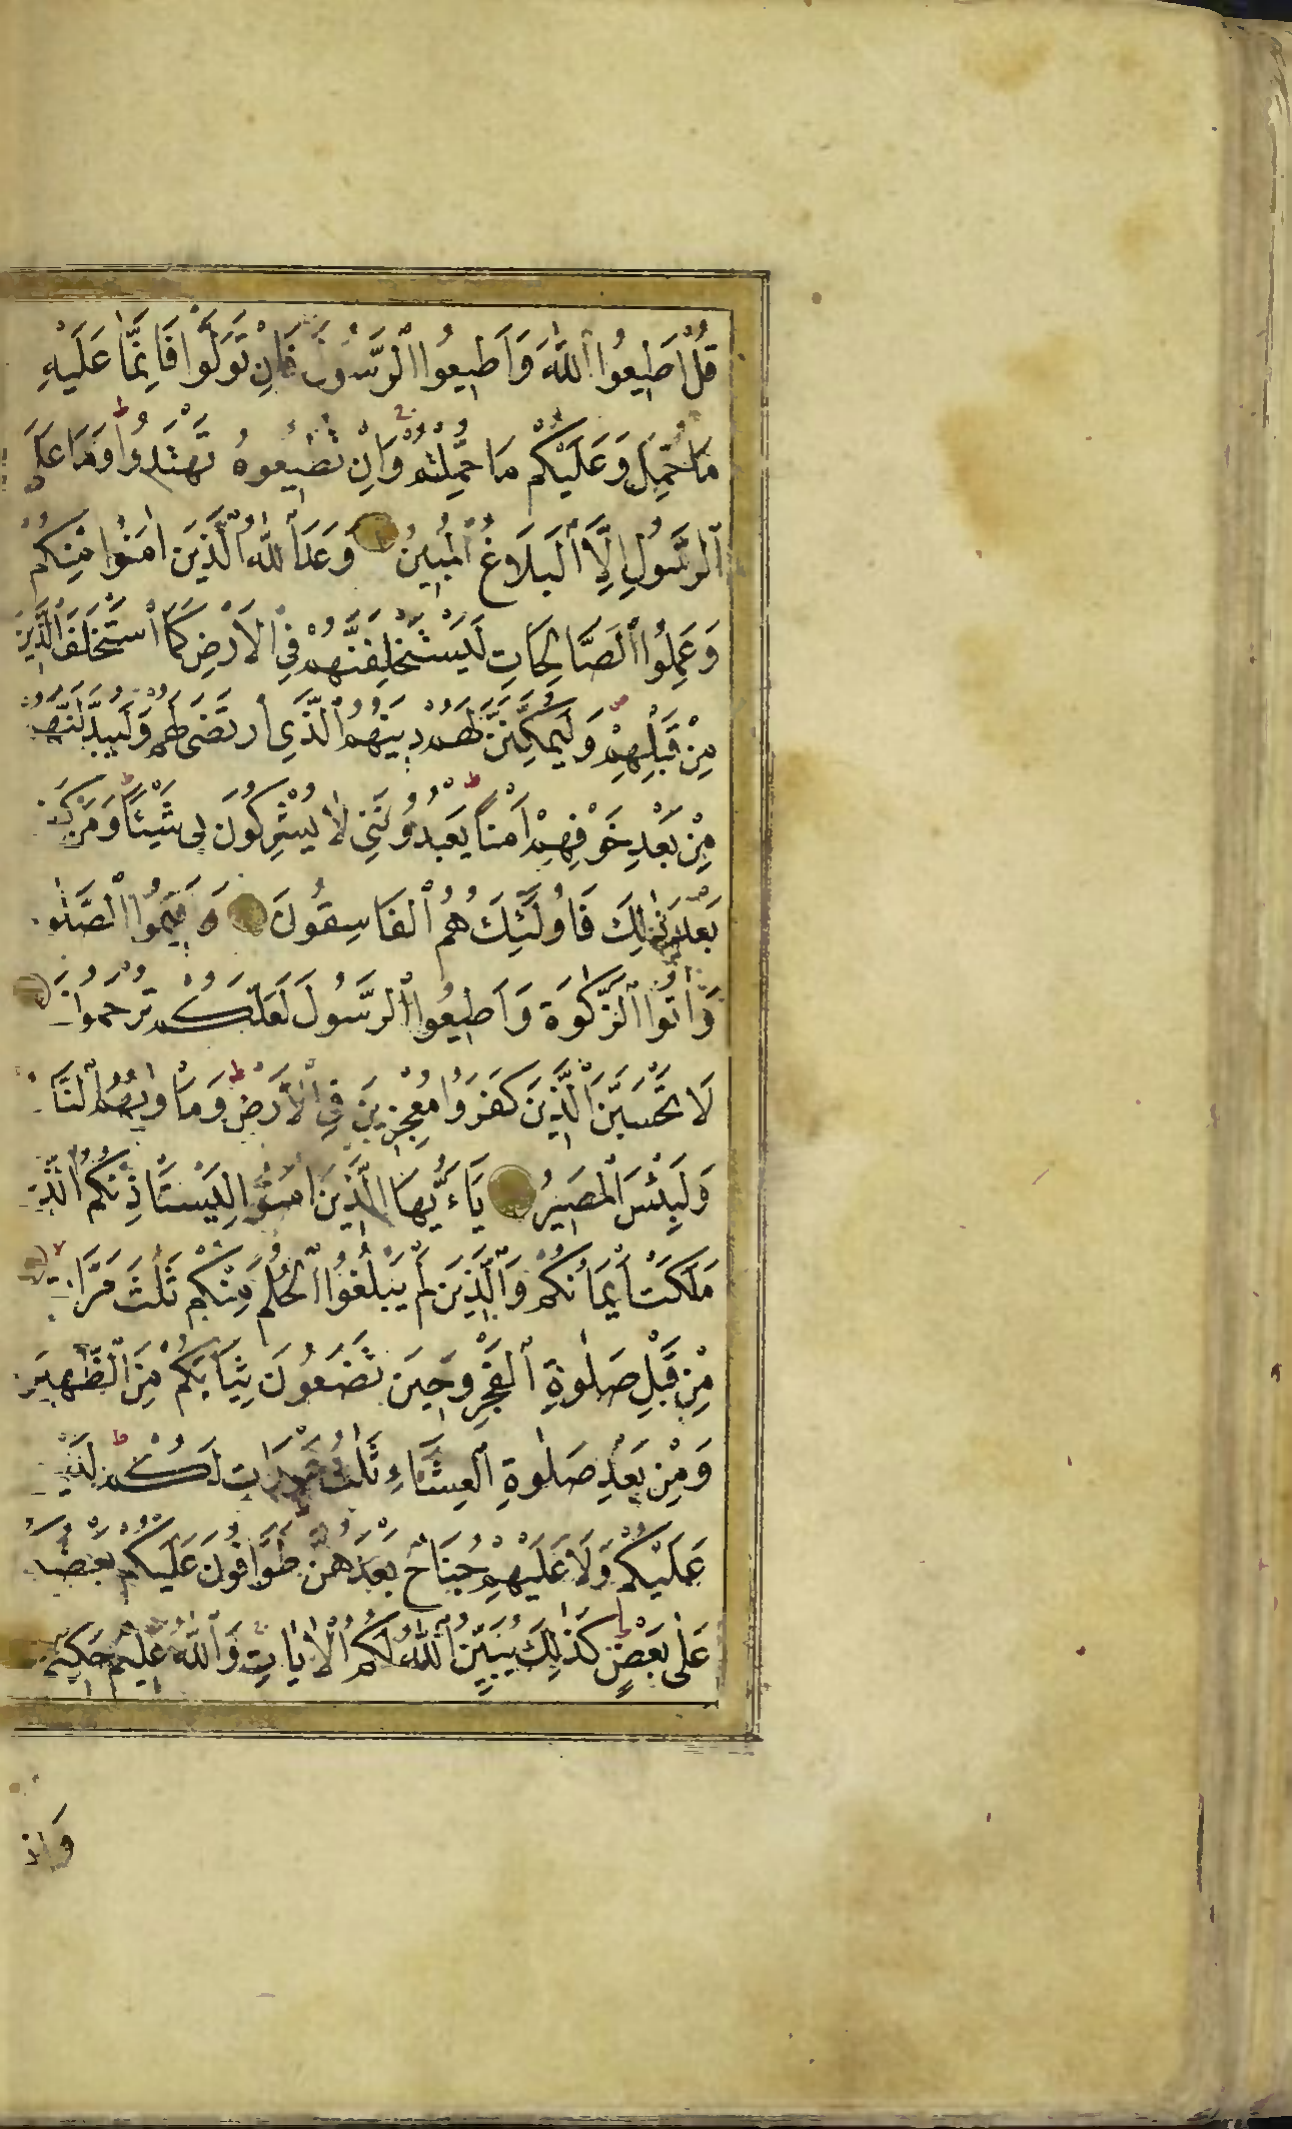 قُلْ اَطِيعُوا ٱللّٰهَ وَاَطِيعُوا ٱلرَّسُولَ فَاِنْ تَوَلَّوْا فَاِنَّمَا عَلَيْهِ
مَا حُمِّلَ وَعَلَيْكُمْ مَا حُمِّلْتُمْ وَاِنْ تُطِيعُوهُ تَهْتَدُوا وَمَا عَلَى
ٱلرَّسُولِ اِلَّا ٱلْبَلَاغُ ٱلْمُبِينُ وَعَدَ ٱللّٰهُ ٱلَّذِينَ اٰمَنُوا مِنْكُمْ
وَعَمِلُوا ٱلصَّالِحَاتِ لَيَسْتَخْلِفَنَّهُمْ فِي ٱلْاَرْضِ كَمَا ٱسْتَخْلَفَ ٱلَّذِينَ
مِنْ قَبْلِهِمْ وَلَيُمَكِّنَنَّ لَهُمْ دِينَهُمُ ٱلَّذِي ٱرْتَضَى لَهُمْ وَلَيُبَدِّلَنَّهُمْ
مِنْ بَعْدِ خَوْفِهِمْ اَمْنًا يَعْبُدُونَنِي لَا يُشْرِكُونَ بِى شَيْئًا وَمَنْ كَ
بَعْدَ ذٰلِكَ فَاُولٰئِكَ هُمُ ٱلْفَاسِقُونَ وَاَقِيمُوا ٱلصَّلٰو
وَاٰتُوا ٱلزَّكٰوةَ وَاَطِيعُوا ٱلرَّسُولَ لَعَلَّكُمْ تُرْحَمُونَ
لَا تَحْسَبَنَّ ٱلَّذِينَ كَفَرُوا مُعْجِزِينَ فِي ٱلْاَرْضِ وَمَاْوٰيهُمُ ٱلنَّا
وَلَبِئْسَ ٱلْمَصِيرُ يَاءَيُّهَا ٱلَّذِينَ اٰمَنُوا لِيَسْتَاْذِنْكُمُ ٱلَّذِ
مَلَكَتْ اَيْمَانُكُمْ وَٱلَّذِينَ لَمْ يَبْلُغُوا ٱلْحُلُمَ مِنْكُمْ ثَلٰثَ مَرَّاتٍ
مِنْ قَبْلِ صَلٰوةِ ٱلْفَجْرِ وَحِينَ تَضَعُونَ ثِيَابَكُمْ مِنَ ٱلظَّهِيرَ
وَمِنْ بَعْدِ صَلٰوةِ ٱلْعِشَاءِ ثَلٰثُ عَوْرَاتٍ لَكُمْ لَيْ
عَلَيْكُمْ وَلَا عَلَيْهِمْ جُنَاحٌ بَعْدَهُنَّ طَوَّافُونَ عَلَيْكُمْ بَعْضُكُ
عَلٰى بَعْضٍ كَذٰلِكَ يُبَيِّنُ ٱللّٰهُ لَكُمُ ٱلْاٰيَاتِ وَٱللّٰهُ عَلِيمٌ حَكِيمٌ
وَاِذَ